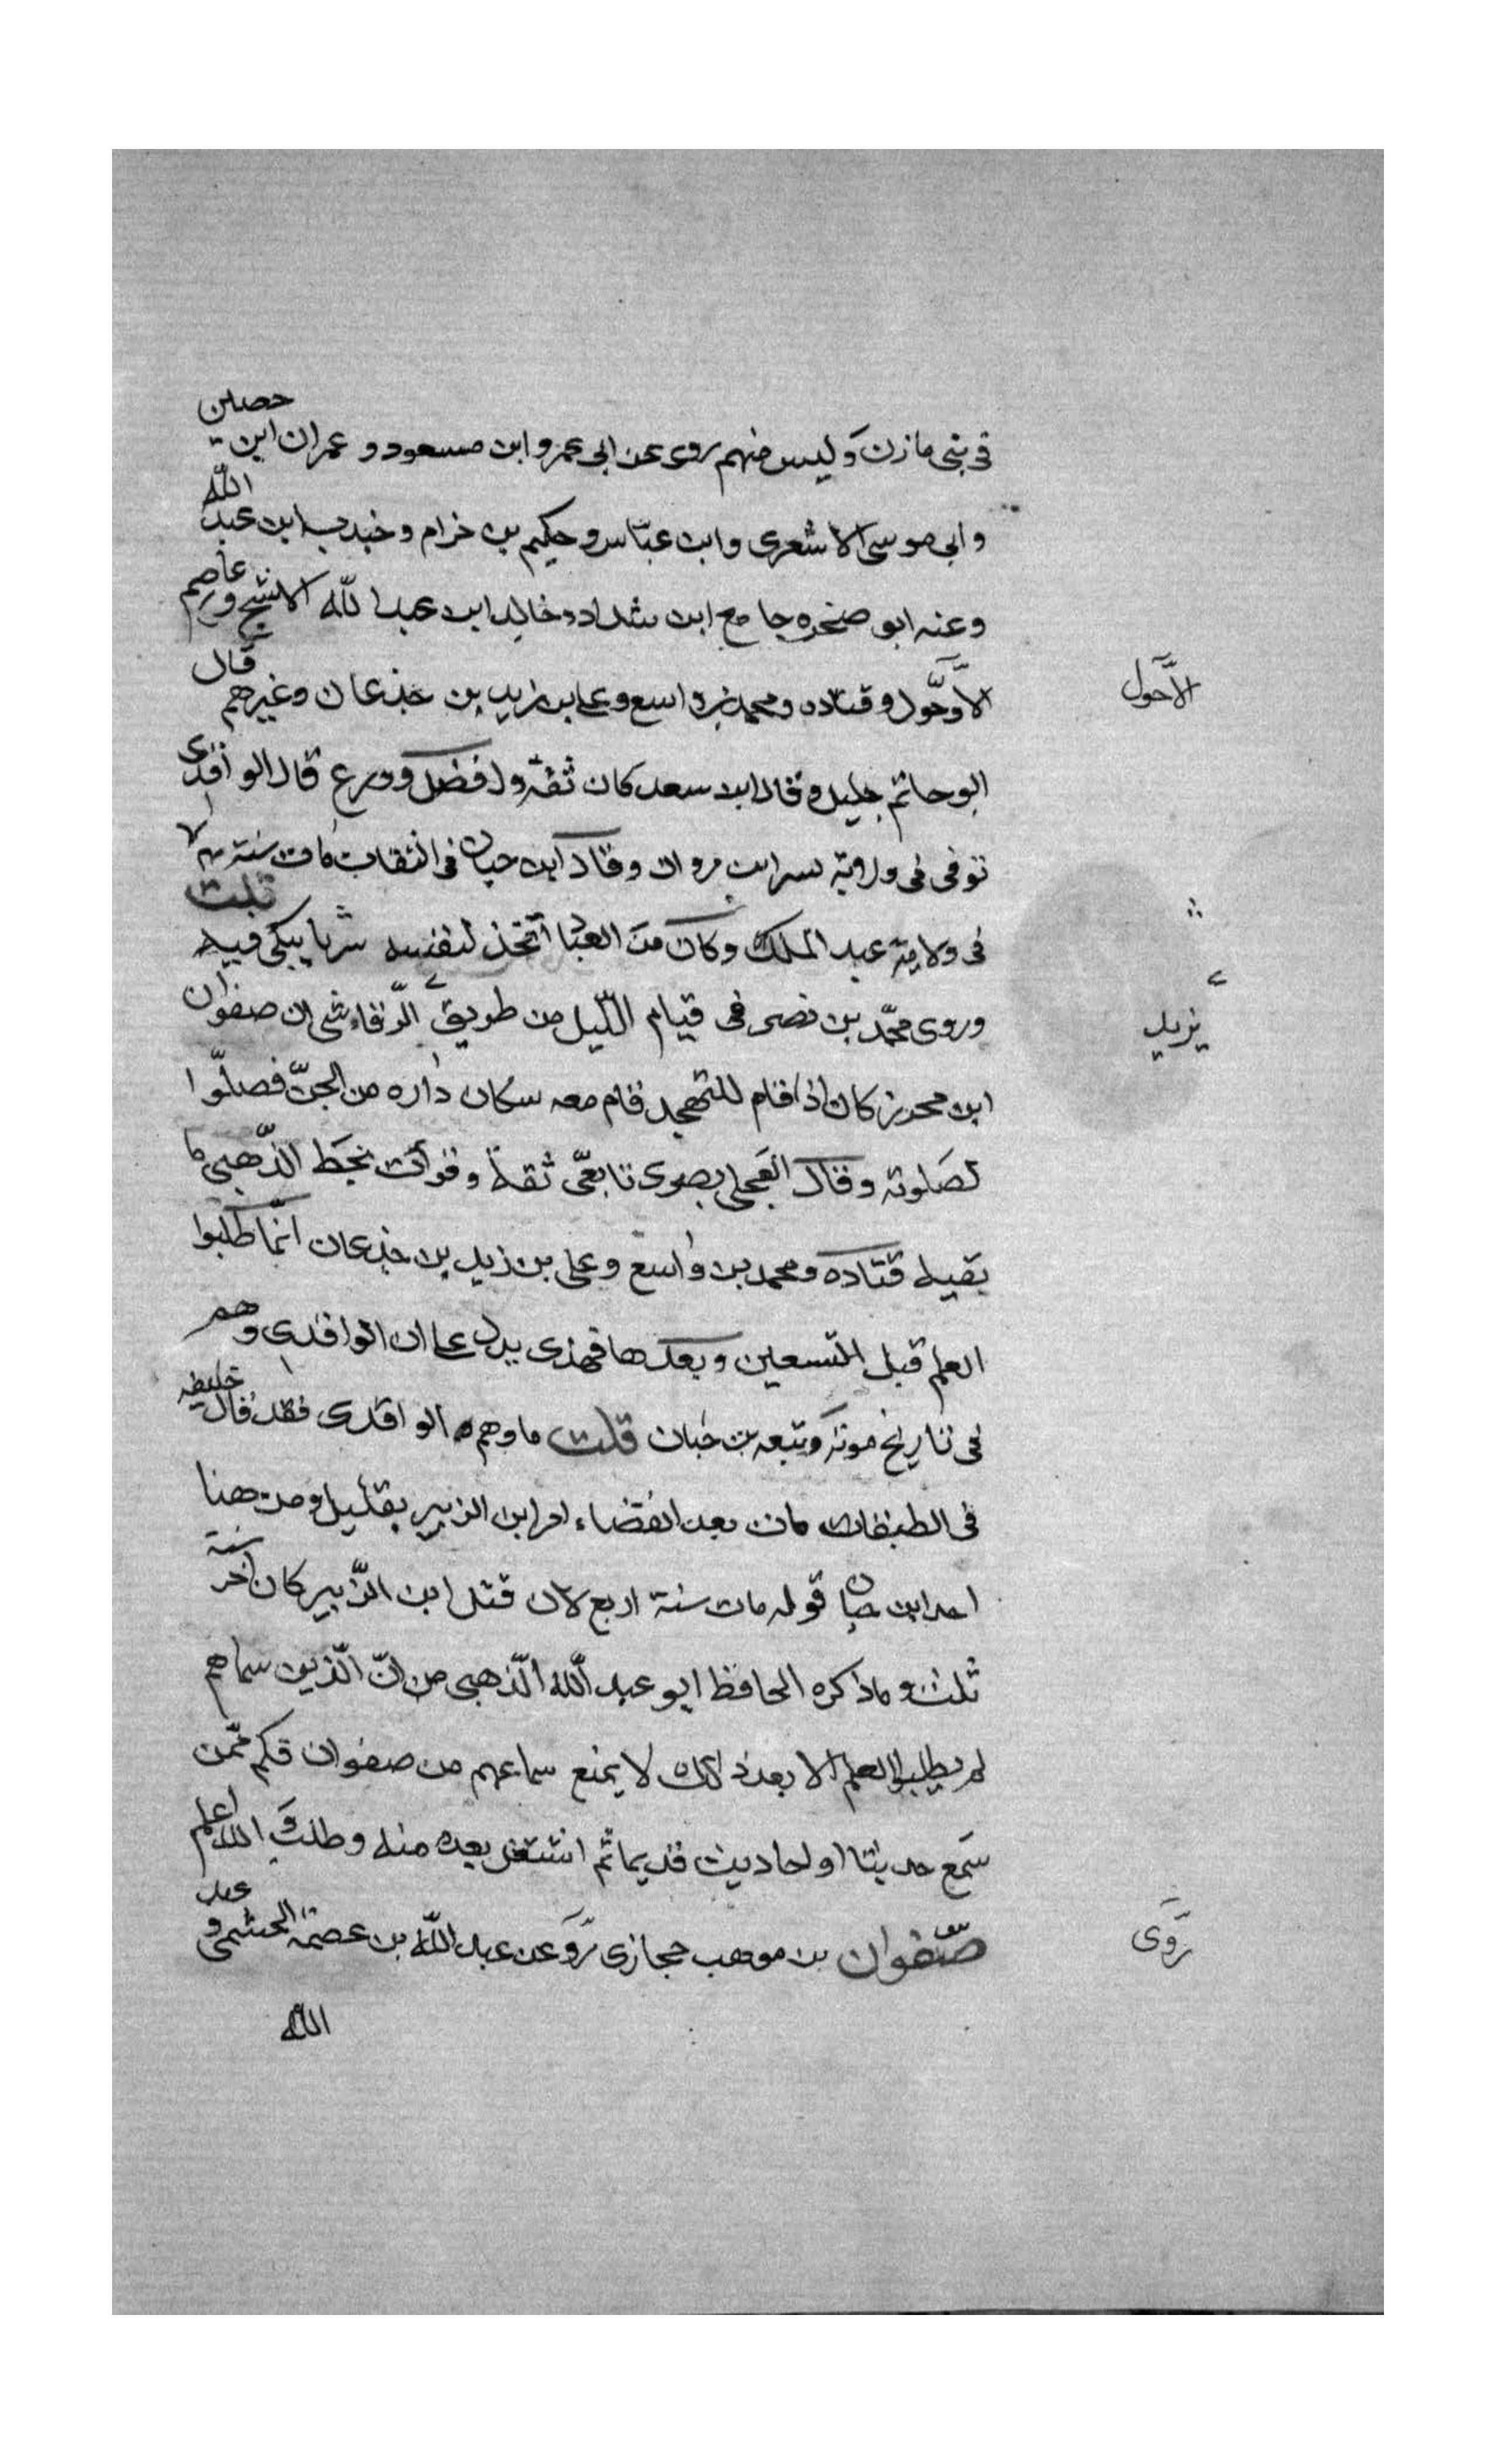 فى بنى مازن وليس منهم روى عن ابى عمر و ابن مسعود و عمران ابن حصين
و ابى موسى الاشعرى وابن عباس و حكيم بن خزام و جندب ابن عبد الله
وعنه ابو صخره جامع ابن شداد و خالد ابن عبد الله الاشج و عاصم
الأوحول و قتاده و محمد بن واسع و على بن زيد بن جذعان وغيرهم قال
الأحول
ابو حاتم جليل و قال ابن سعد كان ثقة وله فضل وورع قال الواقدى
توفى فى ولاية بسر ابن مروان وقال ابن حبان فى الثقات مات سنة
فى ولاية عبد الملك وكان من العباد اتخذ لنفسه سربا يبكى فيه قلت
وروى محمّد بن نصر فى قيام اللّيل من طريق الرّقاشى ان صفوان
يزيد
ابن محرز كان اذا قام للتهجد قام معه سكان داره من الجنّ فصلّوا
لصلوته وقال العجلى بصرى تابعىّ ثقة وقرأت بخط الذّهبى ما
بقيه قتاده ومحمد بن واسع وعلى بن زيد بن جذعان انّما طلبوا
العلم قبل التسعين و بعدها فهذى يدل على ان الواقدى وهم
فى تاريخ موته و تبعه بن حبان قلت ما وهم الواقدى فقد قال خليفه
فى الطبقات مات بعد انقضاء امر ابن الزبير بقليل و من هنا
اخذ ابن حبان قوله مات سنة اربع لان قتل ابن الزّبير كان آخر سنة
ثلث و ماذكره الحافظ ابو عبد اللّه الذّهبى من انّ الّذين سماهم
لم يطلبوا العلم الا بعد ذلك لا يمنع سماعهم من صفوان فكم ممّن
سمع حديثا او احاديث قديما ثم اشتغل بعده منه وطلب و الله اعلم
صّفوان بن موهب حجازى رَوَ عن عبد اللّه بن عصمة الجشمى و عبد
روى
الله